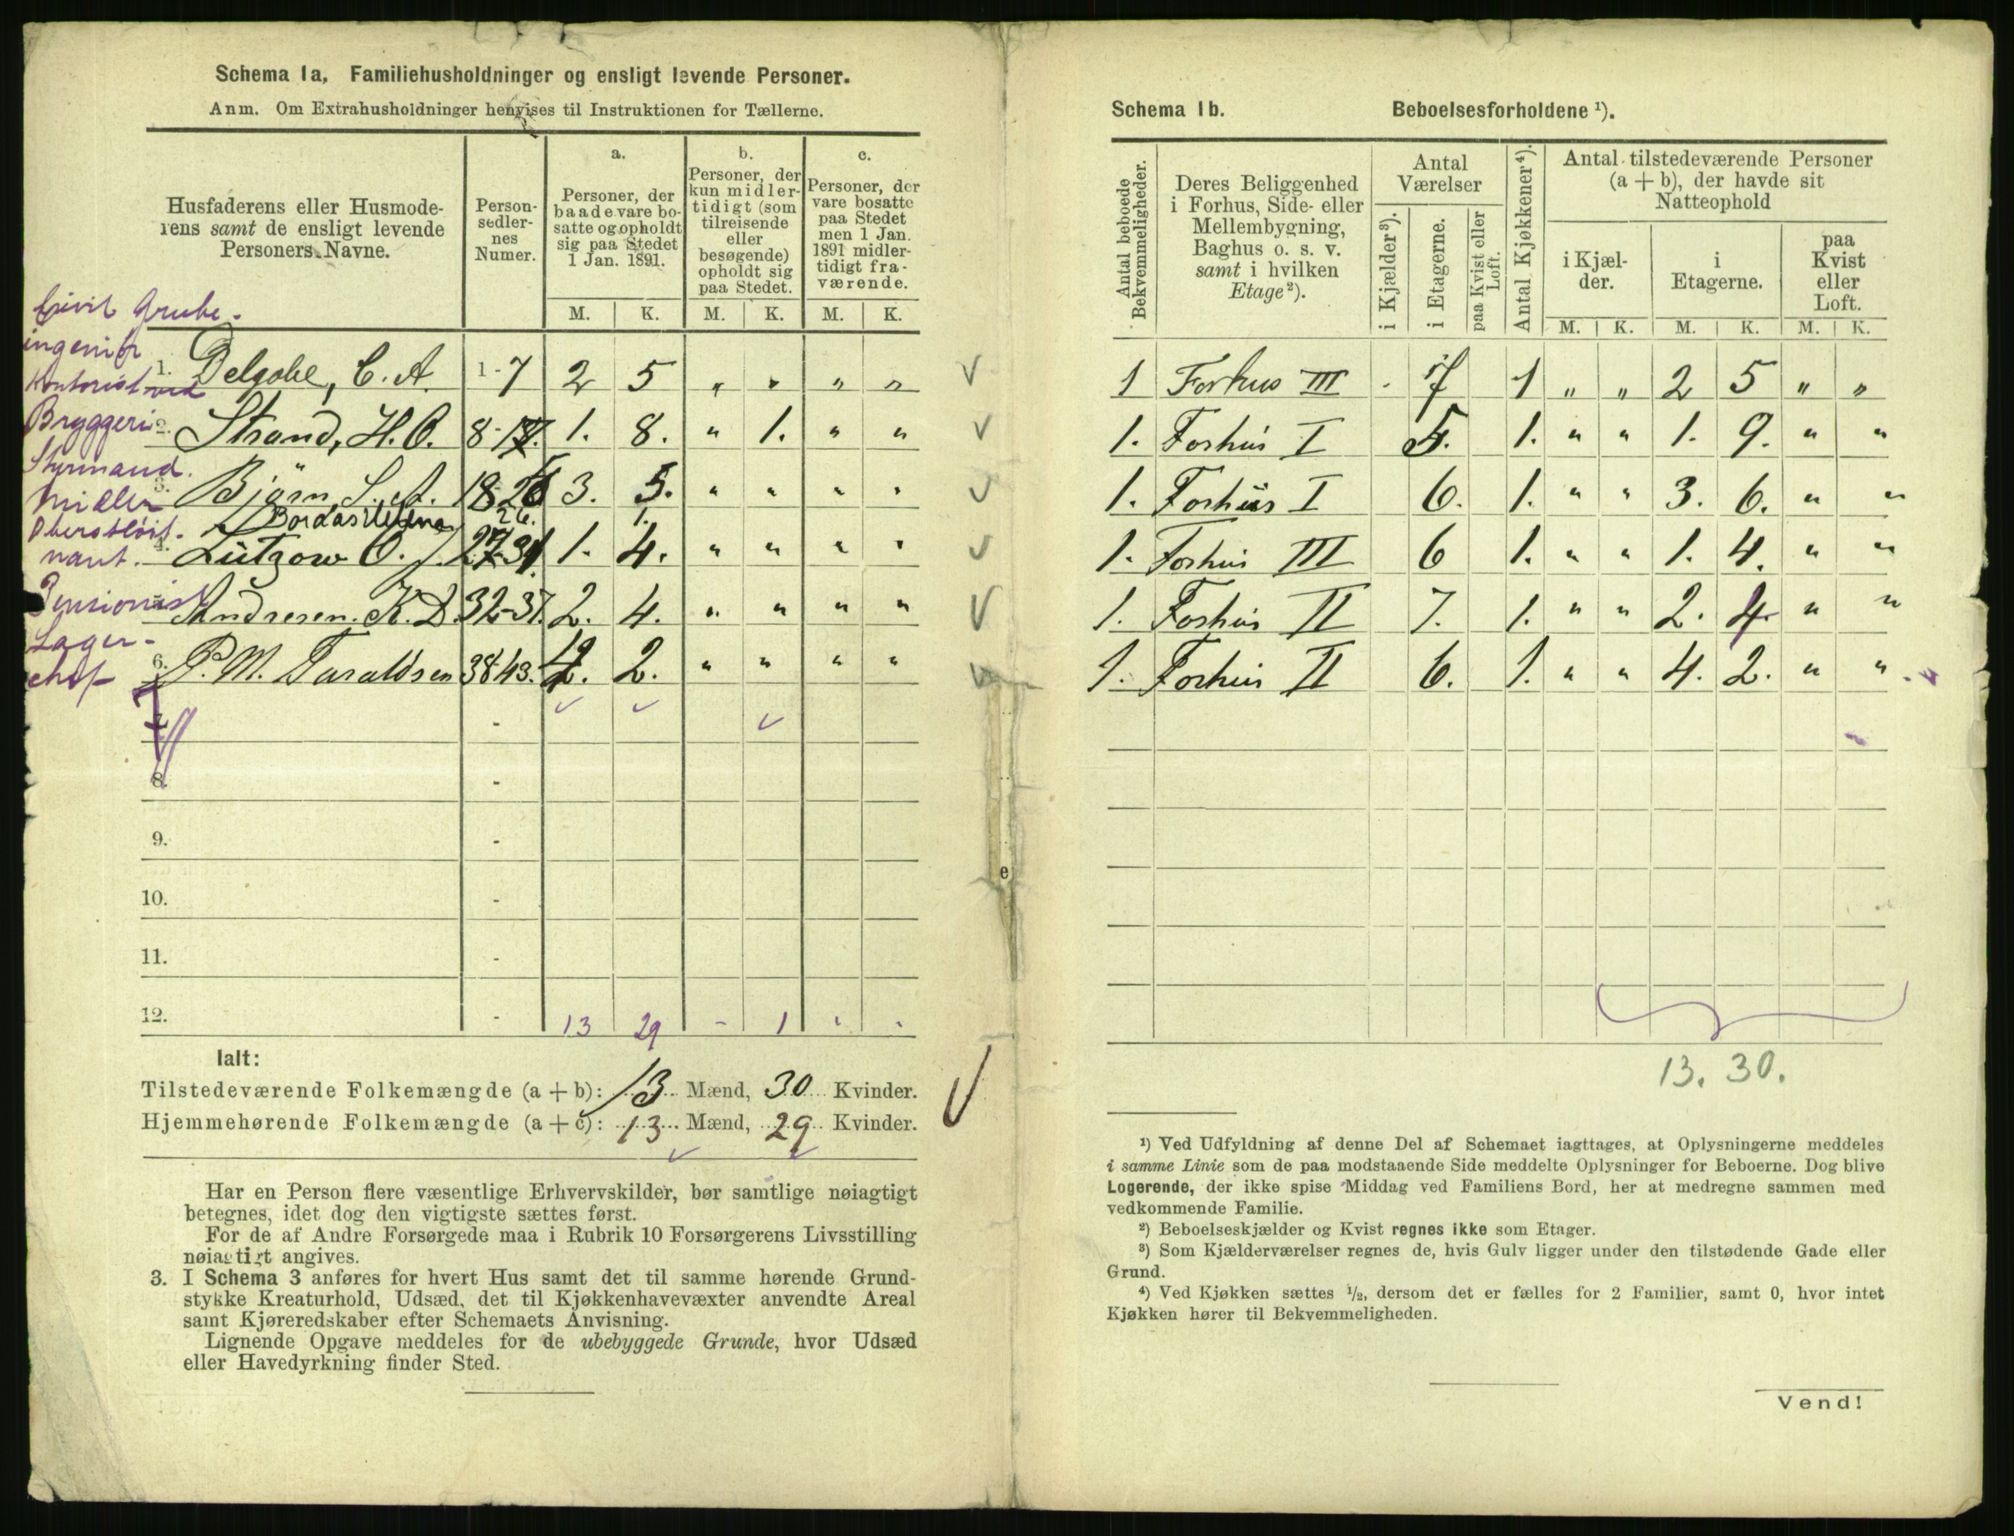 Schema 1a, Familiehusholdninger og ensligt levende Personer.
Anm. Om Extrahusholdninger henvises til Instruktionen for Tællerne.
Husfaderens eller Husmode-
rens samt de ensligt levende
Personers Navne.
Person-
sedler-
nes
Numer.
a.
Personer, der
baade vare bo-
satte og opholdt
sig paa Stedet
1 Jan. 1891.
b.
Personer, der
kun midler-
tidigt (som
tilreisende
eller
besøgende)
opholdt sig
paa Stedet.
c.
Personer, der
vare bosatte
paa Stedet
men 1 Jan.
1891 midler-
tidigt fra-
værende.
M. K. M. K. M. K.
Civil Grube-
ingeniør
1. Delgobe, C. A. 1-7 2 5 „ „ „ „
Kontorist ved
Bryggeri
2. Strand, H. O. 8-17. 1. 8. „ 1. „ „
Styrmand.
3. Bjørn, S. A. 18- 3. 5. „ „ „ „
Møller
26. 1.
Oberstløit-
nant.
4. Lützow O. J. 27-31. 1. 4. „ „ „ „
Pensionist
5. Andresen. K. D. 32-37. 2. 4. „ „ „ „
Lager-
chef
6. P. M. Taraldsen 38-43. 4. 2. „ „ „ „
7. -
8. -
9. -
10. -
11. -
12. - 13 29 - 1 „ „
Ialt:
Tilstedeværende Folkemængde (a + b): 13 Mænd, 30 Kvinder.
Hjemmehørende Folkemængde (a + c): 13 Mænd, 29 Kvinder.
Har en Person flere væsentlige Erhvervskilder, bør samtlige nøiagtigt
betegnes, idet dog den vigtigste sættes først.
For de af Andre Forsørgede maa i Rubrik 10 Forsørgerens Livsstilling
nøiagtigt angives.
3. I Schema 3 anføres for hvert Hus samt det til samme hørende Grund-
stykke Kreaturhold, Udsæd, det til Kjøkkenhavevæxter anvendte Areal
samt Kjøreredskaber efter Schemaets Anvisning.
Lignende Opgave meddeles for de ubebyggede Grunde, hvor Udsæd
eller Havedyrkning finder Sted.
Schema 1b. Beboelsesforholdene ¹).
Antal beboede
Bekvemmeligheder.
Deres Beliggenhed
i Forhus, Side- eller
Mellembygning,
Baghus o. s. v.
samt i hvilken
Etage²).
Antal
Værelser
i Kjælder³).
i Etagerne.
paa Kvist eller
Loft.
Antal Kjøkkener⁴).
Antal tilstedeværende Personer
(a + b), der havde sit
Natteophold
i Kjæl-
der.
i
Etagerne.
paa
Kvist
eller
Loft.
M. K. M. K. M. K.
1 Forhus III - 7 1 „ „ 2 5 „ „
1. Forhus I 5. 1. „ „ 1. 9. „ „
1. Forhus I 6. 1. „ „ 3. 6. „ „
1. Forhus III 6 1. „ „ 1. 4. „ „
1. Forhus II 7. 1. „ „ 2. 4. „ „
1. Forhus II 6. 1. „ „ 4. 2. „ „
13. 30.
¹) Ved Udfyldning af denne Del af Schemaet iagttages, at Oplysningerne meddeles
i samme Linie som de paa modstaaende Side meddelte Oplysninger for Beboerne. Dog blive
Logerende, der ikke spise Middag ved Familiens Bord, her at medregne sammen med
vedkommende Familie.
²) Beboelseskjælder og Kvist regnes ikke som Etager.
³) Som Kjælderværelser regnes de, hvis Gulv ligger under den tilstødende Gade eller
Grund.
⁴) Ved Kjøkken sættes ½, dersom det er fælles for 2 Familier, samt 0, hvor intet
Kjøkken hører til Bekvemmeligheden.
Vend!